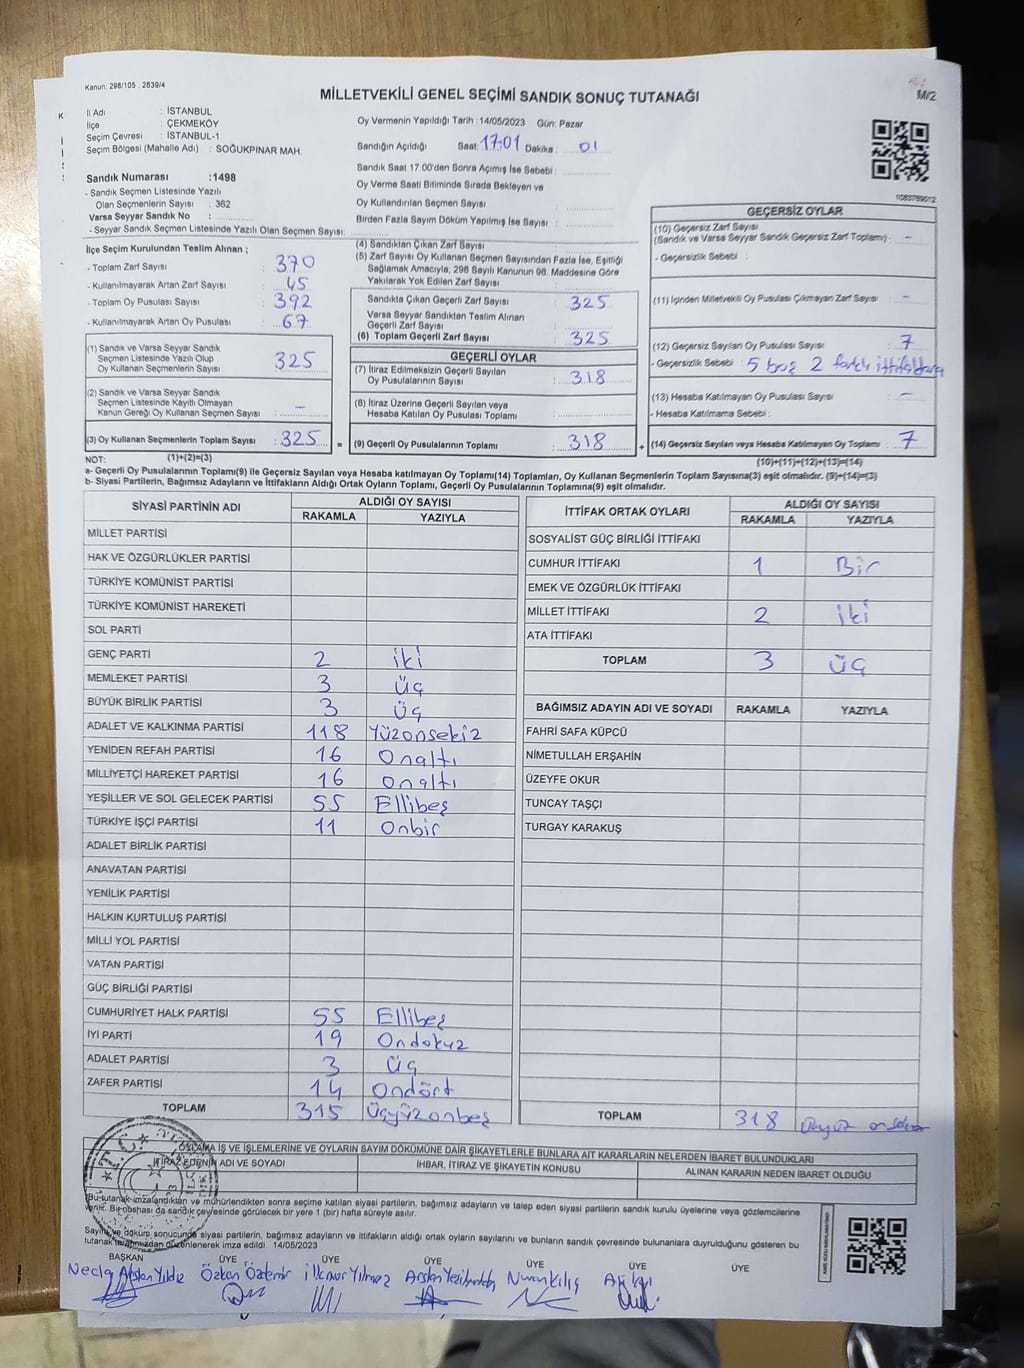 Kanun: 298/105 . 2839/4
MİLLETVEKİLİ GENEL SEÇİMİ SANDIK SONUÇ TUTANAĞI
M/2
İl Adı : İSTANBUL
İlçe : ÇEKMEKÖY
Seçim Çevresi : İSTANBUL-1
Seçim Bölgesi (Mahalle Adı) : SOĞUKPINAR MAH.
Oy Vermenin Yapıldığı Tarih :14/05/2023 Gün: Pazar
Sandığın Açıldığı Saat: 17:01 Dakika : 01
Sandık Saat 17:00'den Sonra Açımış İse Sebebi :
Oy Verme Saati Bitiminde Sırada Bekleyen ve
Oy Kullandırılan Seçmen Sayısı :
Birden Fazla Sayım Döküm Yapılmış İse Sayısı :
Sandık Numarası :1498
- Sandık Seçmen Listesinde Yazılı
Olan Seçmenlerin Sayısı : 362
Varsa Seyyar Sandık No :
- Seyyar Sandık Seçmen Listesinde Yazılı Olan Seçmen Sayısı:
İlçe Seçim Kurulundan Teslim Alınan ;
- Toplam Zarf Sayısı : 370
- Kullanılmayarak Artan Zarf Sayısı : 45
- Toplam Oy Pusulası Sayısı : 392
- Kullanılmayarak Artan Oy Pusulası : 67
(1) Sandık ve Varsa Seyyar Sandık
Seçmen Listesinde Yazılı Olup
Oy Kullanan Seçmenlerin Sayısı : 325
(2) Sandık ve Varsa Seyyar Sandık
Seçmen Listesinde Kayıtlı Olmayan
Kanun Gereği Oy Kullanan Seçmen Sayısı : -
(3) Oy Kullanan Seçmenlerin Toplam Sayısı : 325 =
(4) Sandıktan Çıkan Zarf Sayısı :
(5) Zarf Sayısı Oy Kullanan Seçmen Sayısından Fazla İse, Eşitliği
Sağlamak Amacıyla, 298 Sayılı Kanunun 98. Maddesine Göre
Yakılarak Yok Edilen Zarf Sayısı :
Sandıkta Çıkan Geçerli Zarf Sayısı : 325
Varsa Seyyar Sandıktan Teslim Alınan
Geçerli Zarf Sayısı :
(6) Toplam Geçerli Zarf Sayısı : 325
GEÇERLİ OYLAR
(7) İtiraz Edilmeksizin Geçerli Sayılan
Oy Pusulalarının Sayısı : 318
(8) İtiraz Üzerine Geçerli Sayılan veya
Hesaba Katılan Oy Pusulası Toplamı :
(9) Geçerli Oy Pusulalarının Toplamı : 318 +
GEÇERSİZ OYLAR
(10) Geçersiz Zarf Sayısı
(Sandık ve Varsa Seyyar Sandık Geçersiz Zarf Toplamı) : -
- Geçersizlik Sebebi :
(11) İçinden Milletvekili Oy Pusulası Çıkmayan Zarf Sayısı : -
(12) Geçersiz Sayılan Oy Pusulası Sayısı : 7
- Geçersizlik Sebebi : 5 boş 2 farklı ittifaklara
(13) Hesaba Katılmayan Oy Pusulası Sayısı : -
- Hesaba Katılmama Sebebi :
(14) Geçersiz Sayılan veya Hesaba Katılmayan Oy Toplamı : 7
NOT: (1)+(2)=(3) (10)+(11)+(12)+(13)=(14)
a- Geçerli Oy Pusulalarının Toplamı(9) ile Geçersiz Sayılan veya Hesaba katılmayan Oy Toplamı(14) Toplamları, Oy Kullanan Seçmenlerin Toplam Sayısına(3) eşit olmalıdır. (9)+(14)=(3)
b- Siyasi Partilerin, Bağımsız Adayların ve İttifakların Aldığı Ortak Oyların Toplamı, Geçerli Oy Pusulalarının Toplamına(9) eşit olmalıdır.
SİYASİ PARTİNİN ADI ALDIĞI OY SAYISI
RAKAMLA YAZIYLA
MİLLET PARTİSİ
HAK VE ÖZGÜRLÜKLER PARTİSİ
TÜRKİYE KOMÜNİST PARTİSİ
TÜRKİYE KOMÜNİST HAREKETİ
SOL PARTİ
GENÇ PARTİ 2 iki
MEMLEKET PARTİSİ 3 üç
BÜYÜK BİRLİK PARTİSİ 3 üç
ADALET VE KALKINMA PARTİSİ 118 Yüzonsekiz
YENİDEN REFAH PARTİSİ 16 Onaltı
MİLLİYETÇİ HAREKET PARTİSİ 16 onaltı
YEŞİLLER VE SOL GELECEK PARTİSİ 55 Ellibeş
TÜRKİYE İŞÇİ PARTİSİ 11 Onbir
ADALET BİRLİK PARTİSİ
ANAVATAN PARTİSİ
YENİLİK PARTİSİ
HALKIN KURTULUŞ PARTİSİ
MİLLİ YOL PARTİSİ
VATAN PARTİSİ
GÜÇ BİRLİĞİ PARTİSİ
CUMHURİYET HALK PARTİSİ 55 Ellibeş
İYİ PARTİ 19 Ondokuz
ADALET PARTİSİ 3 üç
ZAFER PARTİSİ 14 ondört
TOPLAM 315 üçyüzonbeş
İTTİFAK ORTAK OYLARI ALDIĞI OY SAYISI
RAKAMLA YAZIYLA
SOSYALİST GÜÇ BİRLİĞİ İTTİFAKI
CUMHUR İTTİFAKI 1 Bir
EMEK VE ÖZGÜRLÜK İTTİFAKI
MİLLET İTTİFAKI 2 iki
ATA İTTİFAKI
TOPLAM 3 üç
BAĞIMSIZ ADAYIN ADI VE SOYADI RAKAMLA YAZIYLA
FAHRİ SAFA KÜPCÜ
NİMETULLAH ERŞAHİN
ÜZEYFE OKUR
TUNCAY TAŞÇI
TURGAY KARAKUŞ
TOPLAM 318
OYLAMA İŞ VE İŞLEMLERİNE VE OYLARIN SAYIM DÖKÜMÜNE DAİR ŞİKAYETLERLE BUNLARA AİT KARARLARIN NELERDEN İBARET BULUNDUKLARI
İTİRAZ EDENİN ADI VE SOYADI İHBAR, İTİRAZ VE ŞİKAYETİN KONUSU ALINAN KARARIN NEDEN İBARET OLDUĞU
Bu tutanak imzalandıktan ve mühürlendikten sonra seçime katılan siyasi partilerin, bağımsız adayların ve talep eden siyasi partilerin sandık kurulu üyelerine veya gözlemcilerine
verilir. Bir nüshası da sandık çevresinde görülecek bir yere 1 (bir) hafta süreyle asılır.
Sayım ve döküm sonucunda siyasi partilerin, bağımsız adayların ve ittifakların aldığı ortak oyların sayılarını ve bunların sandık çevresinde bulunanlara duyrulduğunu gösteren bu
tutanak tarafımızdan düzenlenerek imza edildi. 14/05/2023
BAŞKAN ÜYE ÜYE ÜYE ÜYE ÜYE ÜYE
Özkan Özdemir ilknur Yılmaz Nuran Kılıç